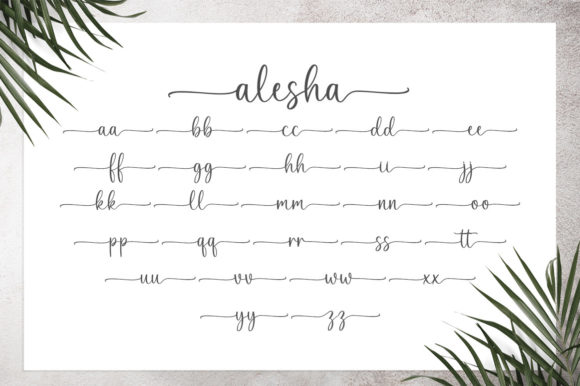 alesha
aa bb cc dd ee
ff gg hh ii jj
kk ll mm nn oo
pp qq rr ss tt
uu vv ww xx
yy zz